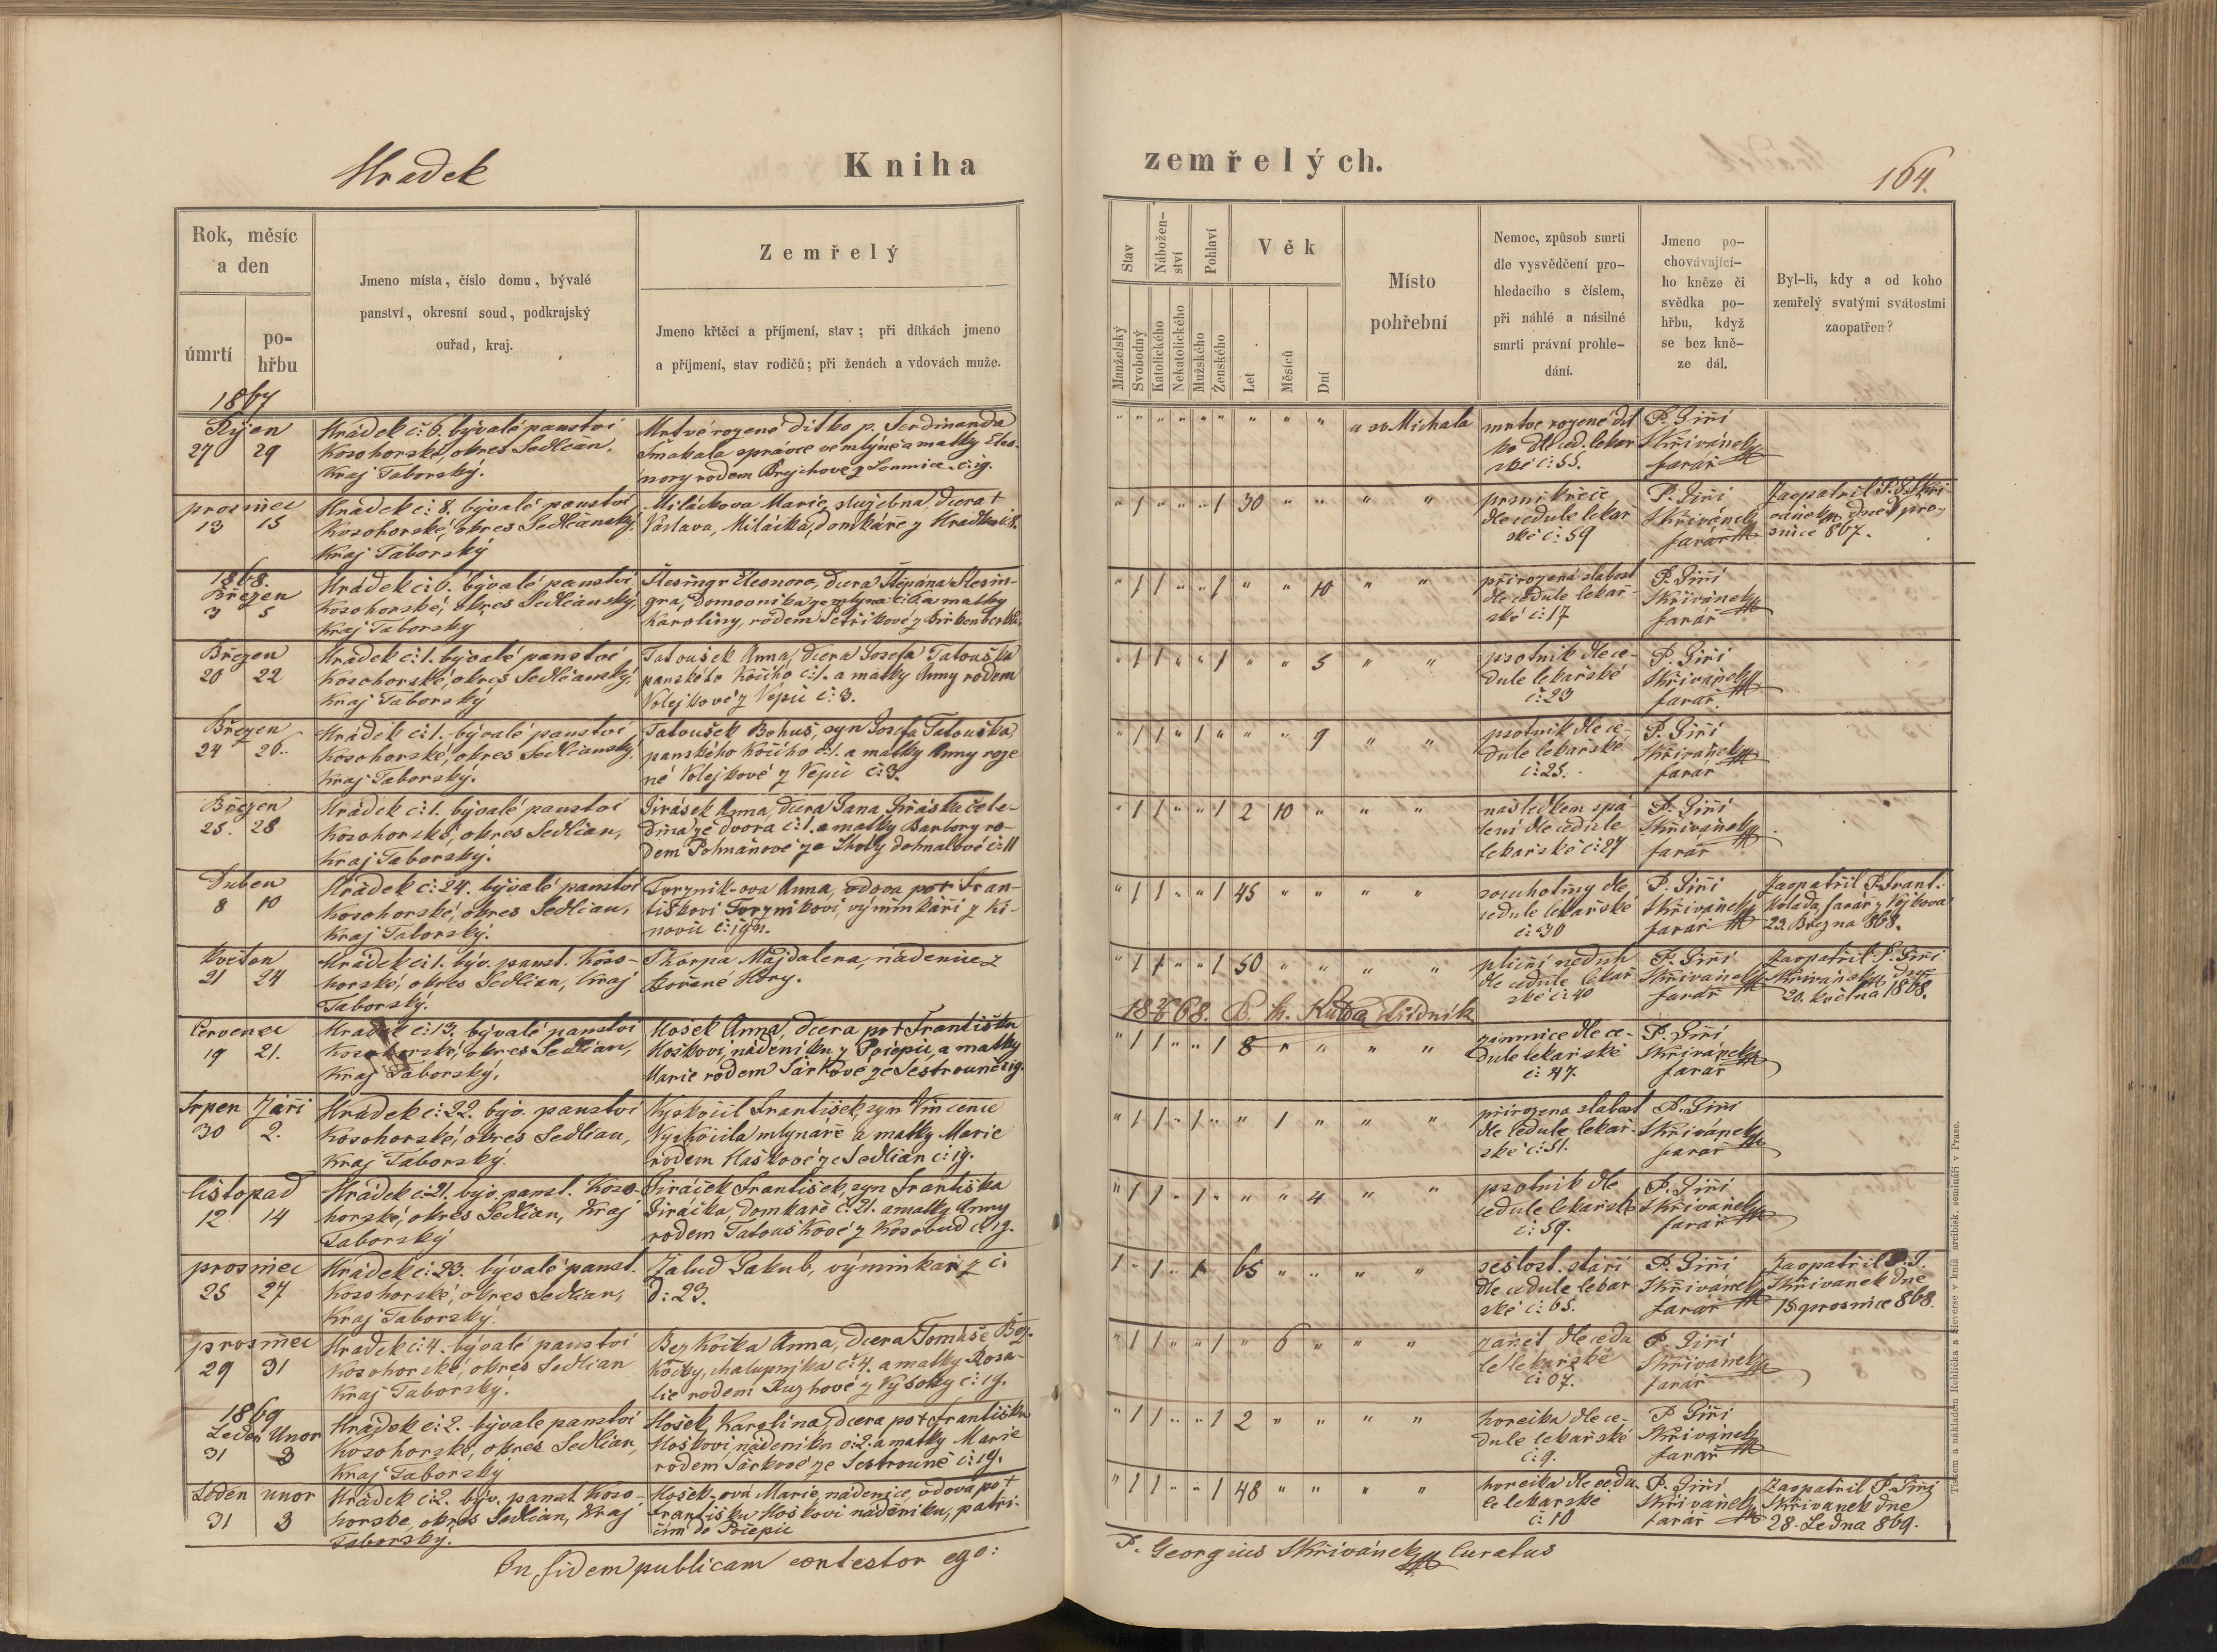 Hradek
Kniha
zemřelých.
164.
Rok, měsíc
a den
úmrtí
po-
hřbu
Jmeno místa, číslo domu, bývalé
panství, okresní soud, podkrajský
ouřad, kraj.
Zemřelý
Jmeno křtěcí a příjmení, stav; při dítkách jmeno
a příjmení, stav rodičů; při ženách a vdovách muže.
Stav
Nábožen-
ství
Pohlaví
Věk
Manželský
Svobodný
Katolického
Nekatolického
Mužského
Ženského
Let
Měsíců
Dní
Místo
pohřební
Nemoc, způsob smrti
dle vysvědčení pro-
hledacího s číslem,
při náhlé a násilné
smrti právní prohle-
dání.
Jmeno po-
chovávající-
ho kněze či
svědka po-
hřbu, když
se bez kně-
ze dál.
Byl-li, kdy a od koho
zemřelý svatými svátostmi
zaopatřen?
1867
Říjen
27 29
Hrádek č: 6. bývalé panství
Kosohorské, okres Sedlčan,
Kraj Taborský.
Mrtvé rozené dítko p. Ferdinanda
Šmakala správce ve mlýně a matky Eleo-
nory rodem Brychové z Lomnice č: 19.
u sv. Michala
mrtvě rozené dít
ko dle ced. lekar
ské č: 55.
P. Jiří
Skřivánek
farář
prosinec
13 15
Hrádek č: 8. bývalé panství
Kosohorské, okres Sedlčanský,
Kraj Táborský
Miláčkova Marie, služebná, dcera †
Václava Miláčka, domkáře z Hradku č: 8.
1 1 30
prsní křeče
dle cedule lekar
ské č: 59
P. Jiří
Skřivánek
farář
Zaopatřil P. J. Skři
vánek dne pro-
since 867.
1868.
Březen
3 5
Hrádek č: 6. bývalé panství
Kosohorské, okres Sedlčanský,
Kraj Taborský
Šlesingr Eleonora, dcera Štěpána Šlesin-
gra, domovníka ze mlýna č: 6. a matky
Karoliny, rodem Petříkové z Birkenberku
1 1 1 10
přirozená slabost
dle cedule lekař-
ské č: 17
P. Jiří
Skřivánek
farář
Březen
20 22
Hrádek č: 1. bývalé panství
Kosohorské, okres Sedlčanský,
Kraj Taborský
Tatoušek Anna, dcera Josefa Tatouška
panského kočího č: 1. a matky Anny rodem
Volejkové z Vepic č: 3.
1 1 1 5
psotník dle ce-
dule lekařské
č: 23
P. Jiří
Skřivánek
farář.
Březen
24 26.
Hrádek č: 1. bývalé panství
Kosohorské, okres Sedlčanský,
Kraj Taborský.
Tatoušek Bohuš, syn Josefa Tatouška,
panského kočího č: 1. a matky Anny roze
né Volejkové z Vepic č: 3.
1 1 1 9
psotník dle ce-
dule lekařské
č: 25.
P. Jiří
Skřivánek
farář
Březen
25. 28
Hrádek č: 1. bývalé panství
Kosohorské, okres Sedlčan,
Kraj Taborský.
Jirásek Anna, dcera Jana Jiráska čele-
dína ze dvora č: 1. a matky Barbory ro-
dem Pohnanové ze Lhoty dohnalové č: 11
1 1 1 2 10
následkem spá-
lení dle cedule
lekařské č: 27
P. Jiří
Skřivánek
farář
Duben
8 10
Hrádek č: 24. bývalé panství
Kosohorské, okres Sedlčan,
Kraj Taborský.
Tvrzník-ova Anna, vdova po † Fran-
tiškovi Tvrzníkovi, výminkáři z Ki-
novic č: 19.
1 1 1 45
souchotiny dle
cedule lekařské
č: 30
P. Jiří
Skřivánek
farář
Zaopatřil P. Frant.
Kolada, farář z Vojkova
23. Března 868.
Květen
21 24
Hrádek č: 1. býv. panst. Koso-
horské, okres Sedlčan, Kraj
Taborský.
Škarpa Majdalena, nádenice z
Hory.
1 1 1 50
plicní neduh
dle cedule lekař
ské č: 40
P. Jiří
Skřivánek
farář
Zaopatřil P. Jiří
Skřivánek dne
20. května 1868.
Červenec
19 21.
Hradek č: 13. bývalé panství
Kosohorské, okres Sedlčan,
Kraj Taborský.
Hošek Anna, dcera po † Františku
Hoškovi, nádeníku z Počepic, a matky
Marie rodem Šárkové ze Sestrouně č: 19.
1 1 1 8
zimnice dle ce-
dule lekařské
č: 47.
P. Jiří
Skřivánek
farář
Srpen Září
30 2.
Hrádek č: 22. býv. panství
Kosohorské, okres Sedlčan,
Kraj Taborský.
Vyskočil František, syn Vincence
Vyskočila mlynáře a matky Marie
rodem Haškové ze Sedlčan č: 19.
1 1 1 1
přirozená slabost
dle cedule lekař-
ské č: 51.
P. Jiří
Skřivánek
farář
listopad
12 14
Hrádek č: 21. býv. panst. Koso-
horské, okres Sedlčan, Kraj
Taborský
Jiráček František, syn Františka
Jiráčka, domkáře č: 21. a matky Anny
rodem Tatouškové z Kosobud č: 19.
1 1 1 4
psotník dle
cedule lekařské
č: 59.
P. Jiří
Skřivánek
farář
prosinec
25 27
Hrádek č: 23. bývalé panst.
Kosohorské, okres Sedlčan,
Kraj Taborský.
Žalud Jakub, výminkář z č:
d: 23.
1 1 1 65
sešlost. stáří
dle cedule lekar-
ské č: 65.
P. Jiří
Skřivánek
farář
Zaopatřil P. J.
Skřivanek dne
15 prosince 868.
prosinec
29 31
Hradek č: 4. bývalé panství
Kosohorské, okres Sedlčan
Kraj Taborský.
Bezkočka Anna, dcera Tomáše Bez-
kočky, chalupníka č: 4. a matky Rosa-
lie rodem Ruzhové z Vysoky č: 19.
1 1 1 6
zánět dle cedu
le lekařské
č: 67.
P. Jiří
Skřivánek
farář
1869
Leden Unor
31 3
Hrádek č: 2. bývale panství
Kosohorské, okres Sedlčan,
Kraj Taborský
Hošek Karolina, dcera po † Františku
Hoškovi, nádeníku č: 2. a matky Marie
rodem Šárkové ze Sestrouně č: 19.
1 1 1 2
horečka dle ce-
dule lekařské
č: 9.
P. Jiří
Skřivánek
farář
Leden unor
31 3
Hrádek č: 2. býv. panst. Koso-
horské, okres Sedlčan, Kraj
Taborský.
Hošek-ová Marie, nádenice, vdova po †
Františku Hoškovi nádeníku, patří-
cím do Počepic
1 1 1 48
horečka dle cedu
le lekarské
č: 10
P. Jiří
Skřivánek
farář
Zaopatřil P. Jiří
Skřivanek dne
28. Ledna 869.
In fidem publicam contestor ego:
P. Georgius Skřivánek Curatus
Tiskem a nákladem Rohlíčka a Sieverse v kníž. arcibisk. semináři v Praze.